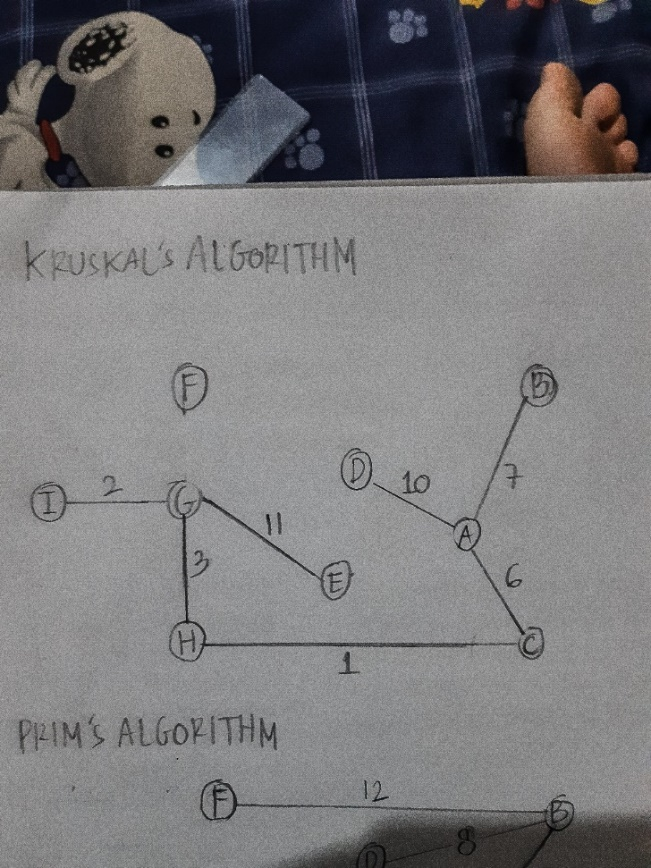 KRUSKAL'S ALGORITHM
F
B
D
10
7
I
2
G
11
A
3
E
6
H
C
1
PRIM'S ALGORITHM
F
12
B
D
8